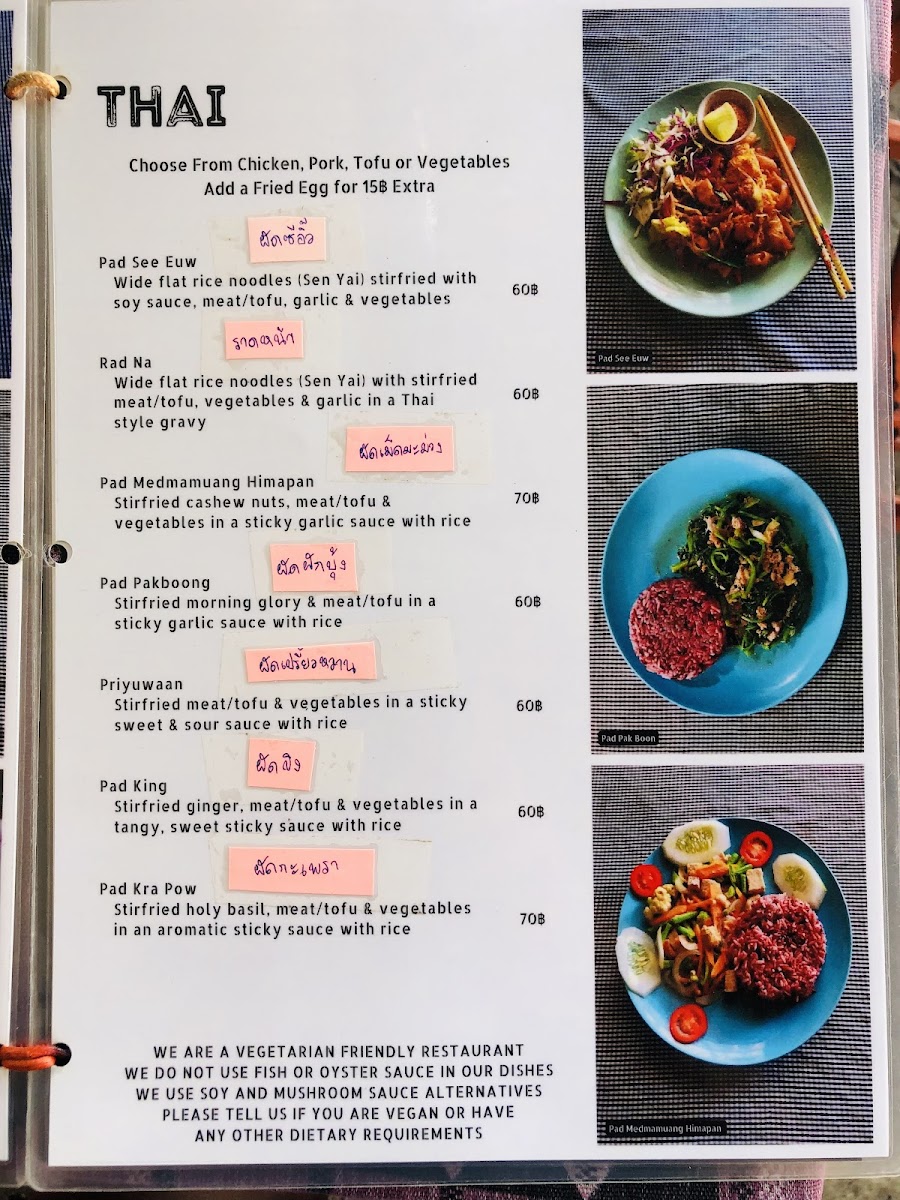 THAI
Choose From Chicken, Pork, Tofu or Vegetables
Add a Fried Egg for 15฿ Extra
ผัดซีอิ๊ว
Pad See Euw
Wide flat rice noodles (Sen Yai) stirfried with
soy sauce, meat/tofu, garlic & vegetables 60฿
ราดหน้า
Rad Na
Wide flat rice noodles (Sen Yai) with stirfried
meat/tofu, vegetables & garlic in a Thai 60฿
style gravy
ผัดเม็ดมะม่วง
Pad Medmamuang Himapan
Stirfried cashew nuts, meat/tofu & 70฿
vegetables in a sticky garlic sauce with rice
ผัดผักบุ้ง
Pad Pakboong
Stirfried morning glory & meat/tofu in a 60฿
sticky garlic sauce with rice
ผัดเปรี้ยวหวาน
Priyuwaan
Stirfried meat/tofu & vegetables in a sticky 60฿
sweet & sour sauce with rice
ผัดขิง
Pad King
Stirfried ginger, meat/tofu & vegetables in a 60฿
tangy, sweet sticky sauce with rice
ผัดกะเพรา
Pad Kra Pow
Stirfried holy basil, meat/tofu & vegetables 70฿
in an aromatic sticky sauce with rice
WE ARE A VEGETARIAN FRIENDLY RESTAURANT
WE DO NOT USE FISH OR OYSTER SAUCE IN OUR DISHES
WE USE SOY AND MUSHROOM SAUCE ALTERNATIVES
PLEASE TELL US IF YOU ARE VEGAN OR HAVE
ANY OTHER DIETARY REQUIREMENTS
Pad See Euw
Pad Pak Boon
Pad Medmamuang Himapan